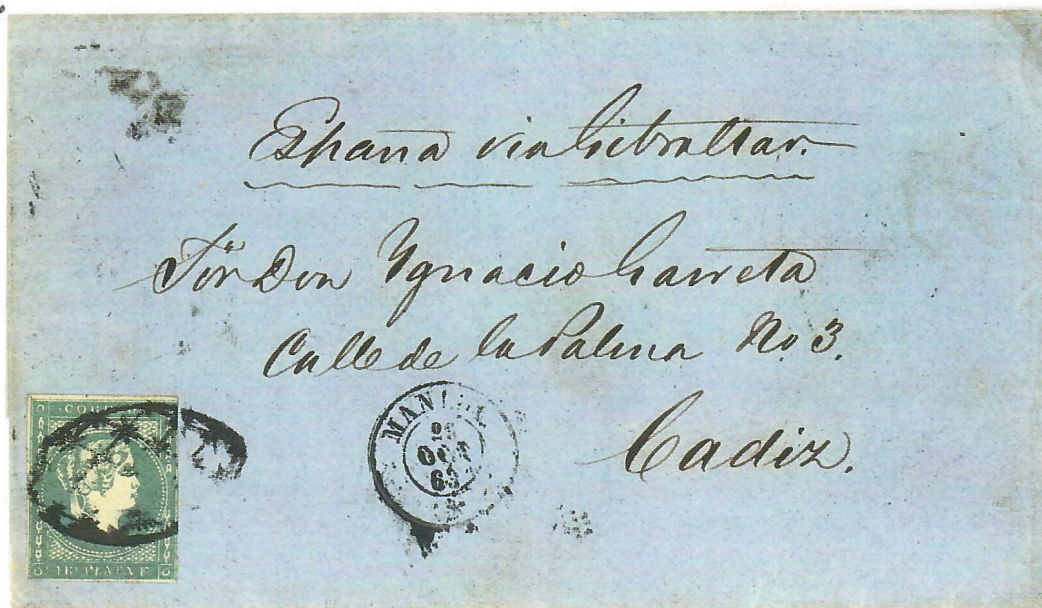 España via Gibraltar.
Sör Don Ygnacio Garreta
Calle de la Palma No. 3.
Cadiz.
MANILA
OCT
63
CORREOS
1 RL PLATA F.